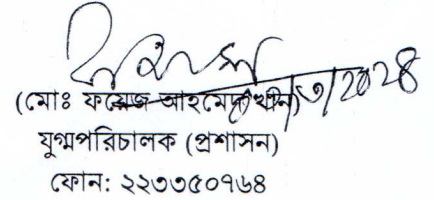 (মোঃ ফয়েজ আহমেদ খান)
যুগ্মপরিচালক (প্রশাসন)
ফোন: ২২৩৩৫০৭৬৪